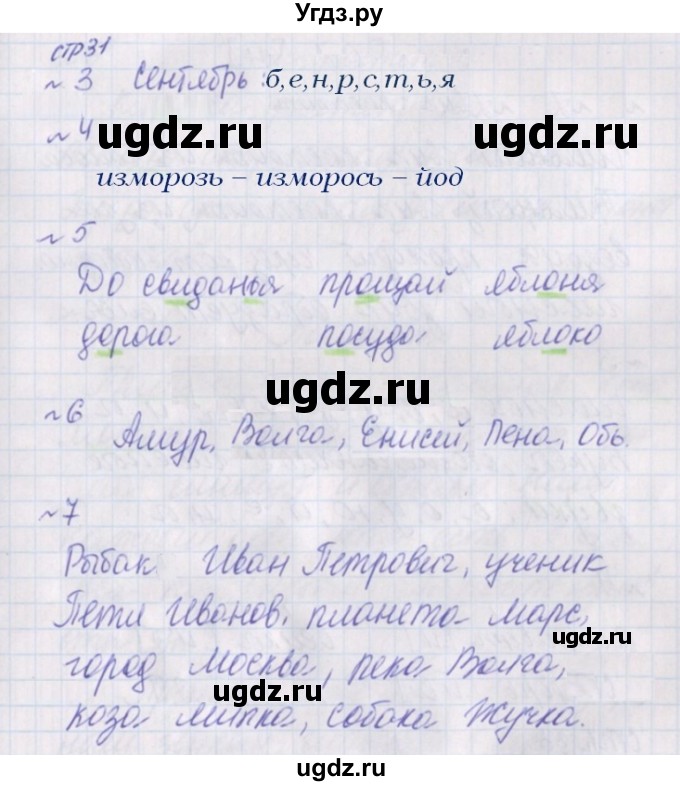 Угдз.ру
стр31
№ 3 Сентябрь :б,е,н,р,с,т,ь,я
№ 4
ugdz.ru ugdz.ru
изморозь – изморось – йод
№ 5
До свиданья прощай яблоня
дорога посуда яблоко
ugdz.ru
№ 6
Амур, Волга, Енисей, Лена, Обь.
№ 7
Рыбак Иван Петрович, ученик
Петя Иванов, планета Марс,
ugdz.ru
город Москва, река Волга,
ugdz.ru
коза Милка, собака Жучка.
ugdz.ru